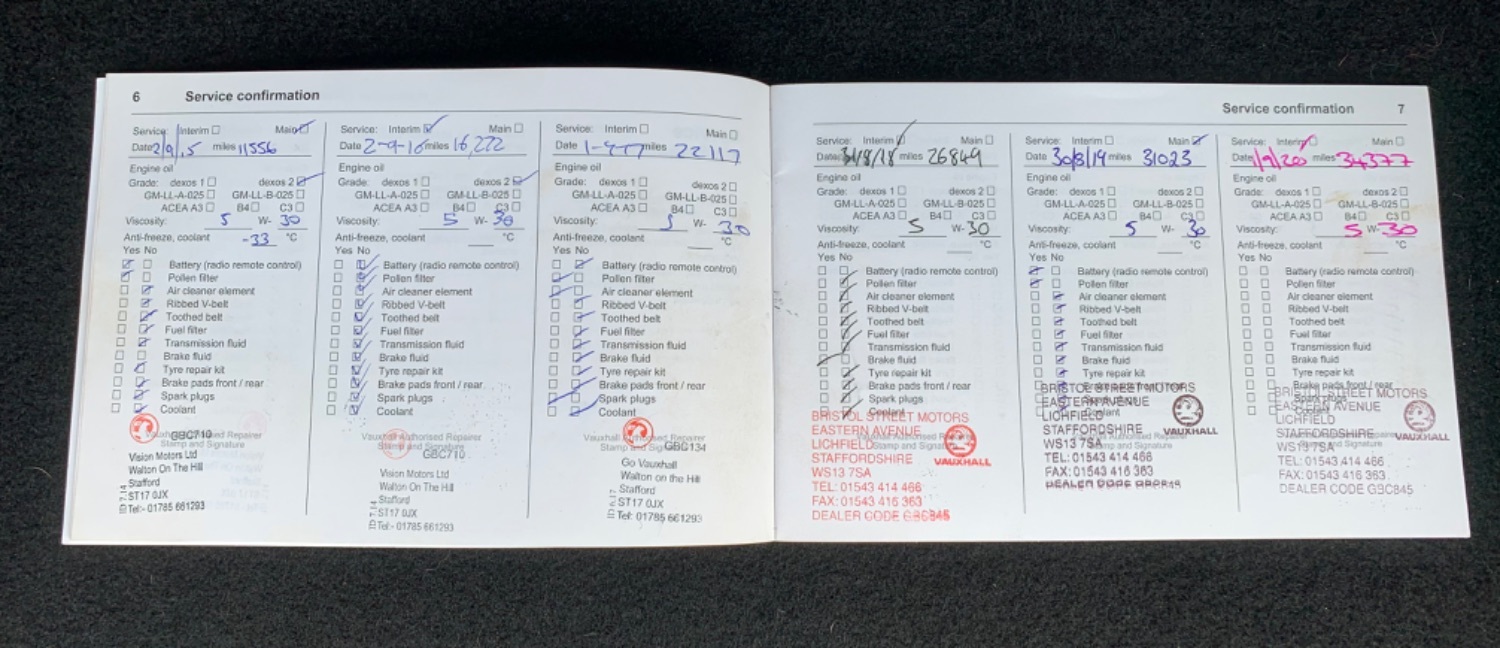 6 Service confirmation
Service: Interim Main
Date 2/9/15 miles 11556
Engine oil
Grade: dexos 1 dexos 2
GM-LL-A-025 GM-LL-B-025
ACEA A3 B4 C3
Viscosity: 5 W- 30
Anti-freeze, coolant -33 °C
Yes No
Battery (radio remote control)
Pollen filter
Air cleaner element
Ribbed V-belt
Toothed belt
Fuel filter
Transmission fluid
Brake fluid
Tyre repair kit
Brake pads front / rear
Spark plugs
Coolant
Vauxhall Authorised Repairer
Stamp and Signature
GBC710
Vision Motors Ltd
Walton On The Hill
Stafford
ST17 0JX
Tel:- 01785 661293
Service: Interim Main
Date 2-9-16 miles 16,272
Engine oil
Grade: dexos 1 dexos 2
GM-LL-A-025 GM-LL-B-025
ACEA A3 B4 C3
Viscosity: 5 W- 30
Anti-freeze, coolant °C
Yes No
Battery (radio remote control)
Pollen filter
Air cleaner element
Ribbed V-belt
Toothed belt
Fuel filter
Transmission fluid
Brake fluid
Tyre repair kit
Brake pads front / rear
Spark plugs
Coolant
Vauxhall Authorised Repairer
Stamp and Signature
GBC710
Vision Motors Ltd
Walton On The Hill
Stafford
ST17 0JX
Tel:- 01785 661293
Service: Interim Main
Date miles 22117
Engine oil
Grade: dexos 1 dexos 2
GM-LL-A-025 GM-LL-B-025
ACEA A3 B4 C3
Viscosity: 5 W- 30
Anti-freeze, coolant °C
Yes No
Battery (radio remote control)
Pollen filter
Air cleaner element
Ribbed V-belt
Toothed belt
Fuel filter
Transmission fluid
Brake fluid
Tyre repair kit
Brake pads front / rear
Spark plugs
Coolant
Vauxhall Authorised Repairer
Stamp and Signature
GBC134
Go Vauxhall
Walton on the Hill
Stafford
ST17 0JX
Tel: 01785 661293
Service confirmation 7
Service: Interim Main
Date: 31/8/18 miles 26849
Engine oil
Grade: dexos 1 dexos 2
GM-LL-A-025 GM-LL-B-025
ACEA A3 B4 C3
Viscosity: 5 W- 30
Anti-freeze, coolant °C
Yes No
Battery (radio remote control)
Pollen filter
Air cleaner element
Ribbed V-belt
Toothed belt
Fuel filter
Transmission fluid
Brake fluid
Tyre repair kit
Brake pads front / rear
Spark plugs
Coolant
BRISTOL STREET MOTORS
EASTERN AVENUE
LICHFIELD
STAFFORDSHIRE
WS13 7SA
TEL: 01543 414 466
FAX: 01543 416 363
DEALER CODE GBC845
VAUXHALL
Service: Interim Main
Date 30/8/19 miles 31023
Engine oil
Grade: dexos 1 dexos 2
GM-LL-A-025 GM-LL-B-025
ACEA A3 B4 C3
Viscosity: 5 W- 30
Anti-freeze, coolant °C
Yes No
Battery (radio remote control)
Pollen filter
Air cleaner element
Ribbed V-belt
Toothed belt
Fuel filter
Transmission fluid
Brake fluid
Tyre repair kit
Brake pads front / rear
Spark plugs
Coolant
BRISTOL STREET MOTORS
EASTERN AVENUE
LICHFIELD
STAFFORDSHIRE
WS13 7SA
TEL: 01543 414 466
FAX: 01543 416 363
DEALER CODE
VAUXHALL
Service: Interim Main
Date 1/9/20 miles 34377
Engine oil
Grade: dexos 1 dexos 2
GM-LL-A-025 GM-LL-B-025
ACEA A3 B4 C3
Viscosity: 5 W- 30
Anti-freeze, coolant °C
Yes No
Battery (radio remote control)
Pollen filter
Air cleaner element
Ribbed V-belt
Toothed belt
Fuel filter
Transmission fluid
Brake fluid
Tyre repair kit
Brake pads front / rear
Spark plugs
Coolant
BRISTOL STREET MOTORS
EASTERN AVENUE
LICHFIELD
STAFFORDSHIRE
WS13 7SA
TEL: 01543 414 466
FAX: 01543 416 363
DEALER CODE GBC845
VAUXHALL